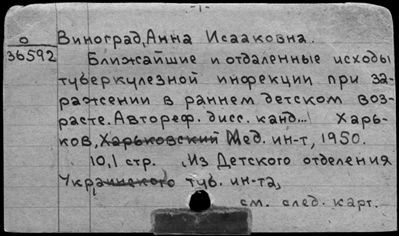 -1-
0 Виноград, Анна Исааковна.
36592 Ближайшие и отдаленные исходы
туберкулезной инфекции при за-
ражении в раннем детском воз-
расте. Автореф. дисс. канд... Харь-
ков, Харьковский Мед. ин-т, 1950.
10,1 стр. (Из Детского отделения
Украинского туб. ин-та)
см. след. карт.